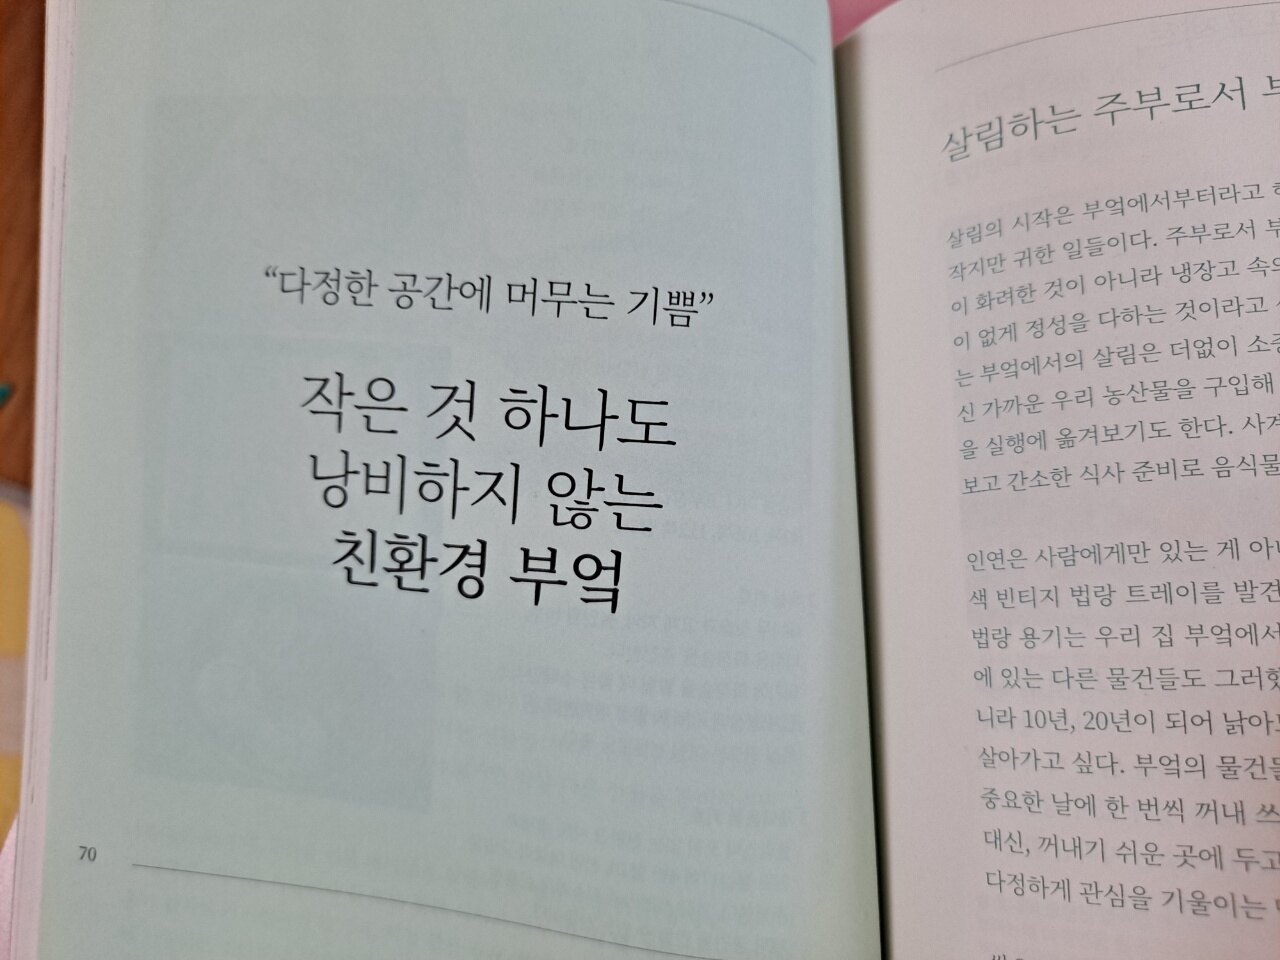 “다정한 공간에 머무는 기쁨”
작은 것 하나도
낭비하지 않는
친환경 부엌
70
살림하는 주부로서
살림의 시작은 부엌에서부터라고
작지만 귀한 일들이다. 주부로서
이 화려한 것이 아니라 냉장고 속의
이 없게 정성을 다하는 것이라고
는 부엌에서의 살림은 더없이 소중
신 가까운 우리 농산물을 구입해
을 실행에 옮겨보기도 한다. 사계
보고 간소한 식사 준비로 음식물
인연은 사람에게만 있는 게 아니
색 빈티지 법랑 트레이를 발견
법랑 용기는 우리 집 부엌에서
에 있는 다른 물건들도 그러했
니라 10년, 20년이 되어 낡아
살아가고 싶다. 부엌의 물건들
중요한 날에 한 번씩 꺼내 쓰
대신, 꺼내기 쉬운 곳에 두고
다정하게 관심을 기울이는